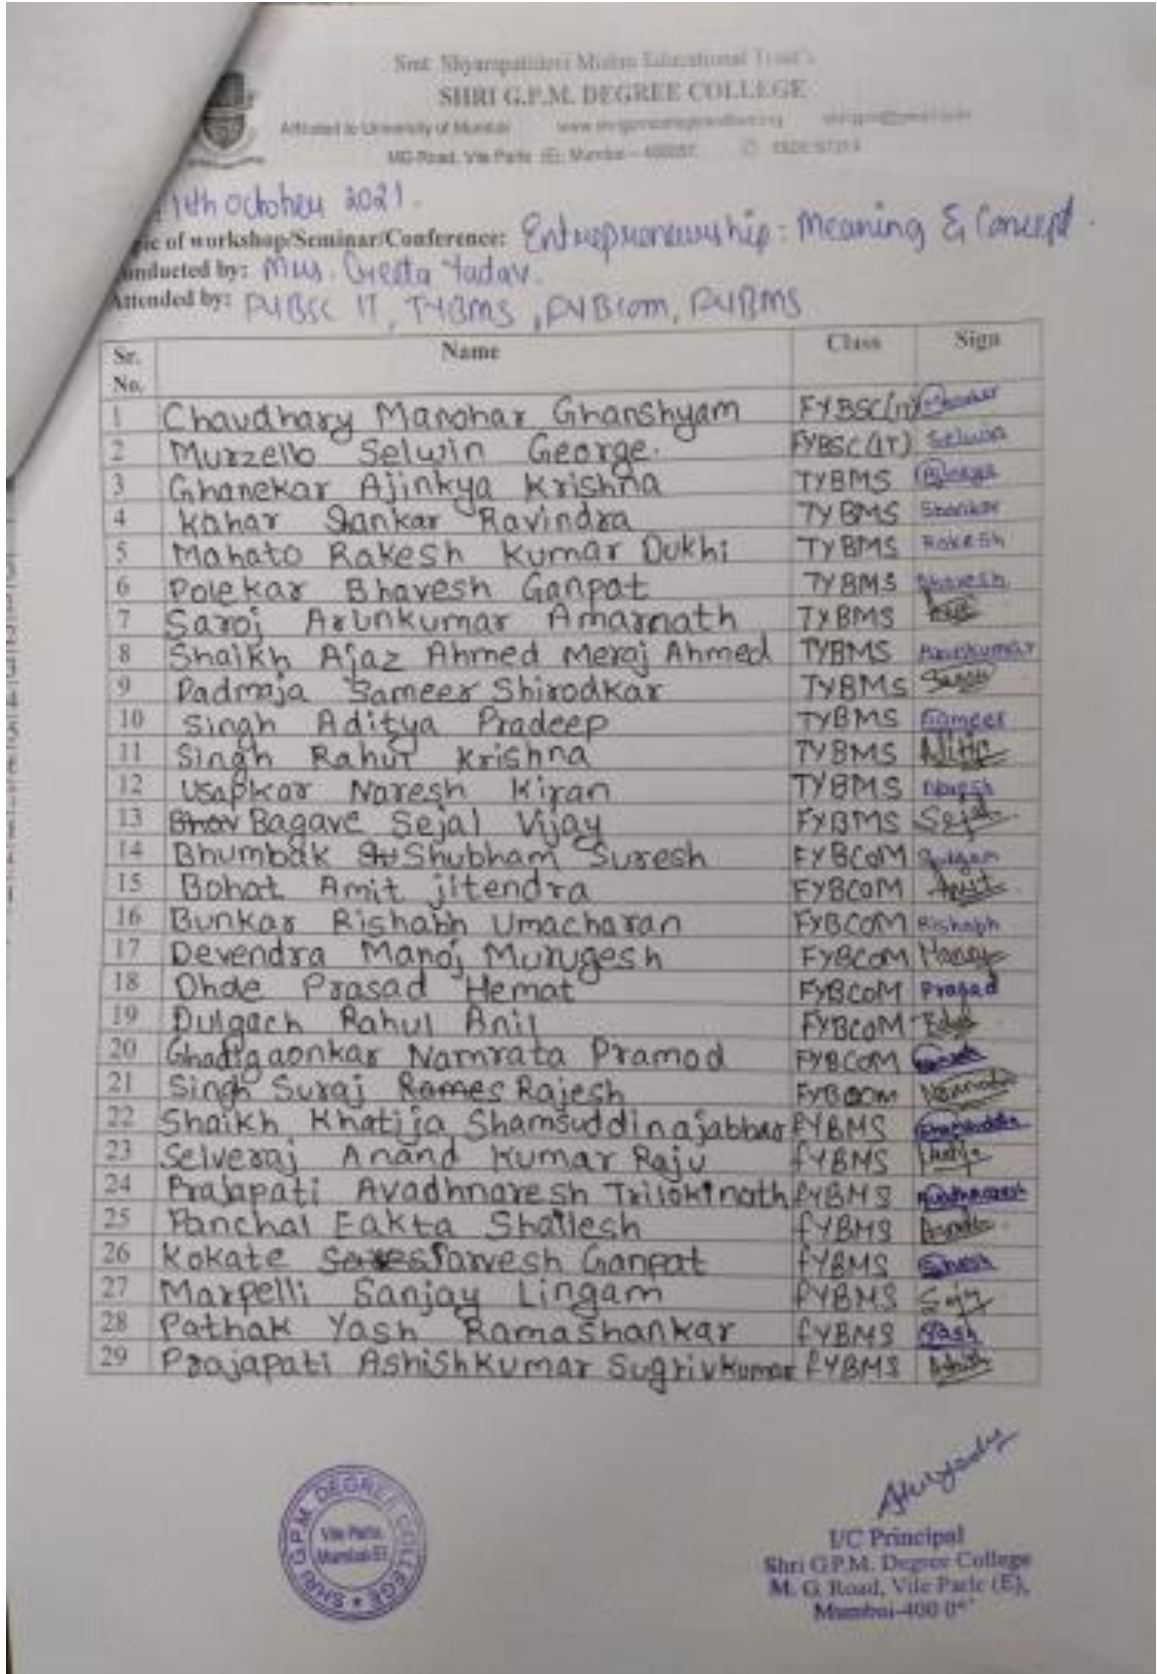 Smt. Shyarapatidevi Mishra Educational Trust's
SHRI G.P.M. DEGREE COLLEGE
Affiliated to University of Mumbai
MG Road, Vile Parle (E), Mumbai - 400057.
11th October 2021.
of workshop/Seminar/Conference: Entrepreneurship: Meaning & Concept.
onducted by: Mrs. Geeta Yadav.
Attended by: FYBSC IT, TYBMS, FYBcom, FYBMS
Sr. No. Name Class Sign
1 Chaudhary Manohar Ghanshyam FYBSC(IT) Manohar
2 Murzello Selwin George. FYBSC(IT) Selwin
3 Ghanekar Ajinkya Krishna TYBMS Ajinkya
4 Kahar Shankar Ravindra TYBMS Shankar
5 Mahato Rakesh Kumar Dukhi TYBMS Rakesh
6 Polekar Bhavesh Ganpat TYBMS Bhavesh
7 Saroj Arunkumar Amarnath TYBMS
8 Shaikh Ajaz Ahmed Meraj Ahmed TYBMS Arunkumar
9 Padmaja Sameer Shirodkar TYBMS
10 Singh Aditya Pradeep TYBMS Sameer
11 Singh Rahul Krishna TYBMS
12 Usapkar Naresh Kiran TYBMS Naresh
13 Bhav Bagave Sejal Vijay FYBMS Sejal
14 Bhumbak Shubham Suresh FYBCOM
15 Bohat Amit jitendra FYBCOM Amit
16 Bunkar Rishabh Umacharan FYBCOM Rishabh
17 Devendra Manoj Murugesh FYBCOM Manoj
18 Dhde Prasad Hemat FYBCOM Prasad
19 Dulgach Rahul Anil FYBCOM
20 Ghadigaonkar Namrata Pramod FYBCOM
21 Singh Suraj Rames Rajesh FYBCOM Namrata
22 Shaikh Khatija Shamsuddinajabbar FYBMS
23 Selveraj Anand Kumar Raju FYBMS
24 Prajapati Avadhnaresh Trilokinath FYBMS Avadhnaresh
25 Panchal Eakta Shailesh FYBMS
26 Kokate Sarvesh Ganpat FYBMS
27 Marpelli Sanjay Lingam FYBMS
28 Pathak Yash Ramashankar FYBMS Yash
29 Prajapati Ashishkumar Sugrivkumar FYBMS Ashish
SHRI G.P.M. DEGREE COLLEGE
Vile Parle,
Mumbai(E)
I/C Principal
Shri G.P.M. Degree College
M. G. Road, Vile Parle (E),
Mumbai-400 0